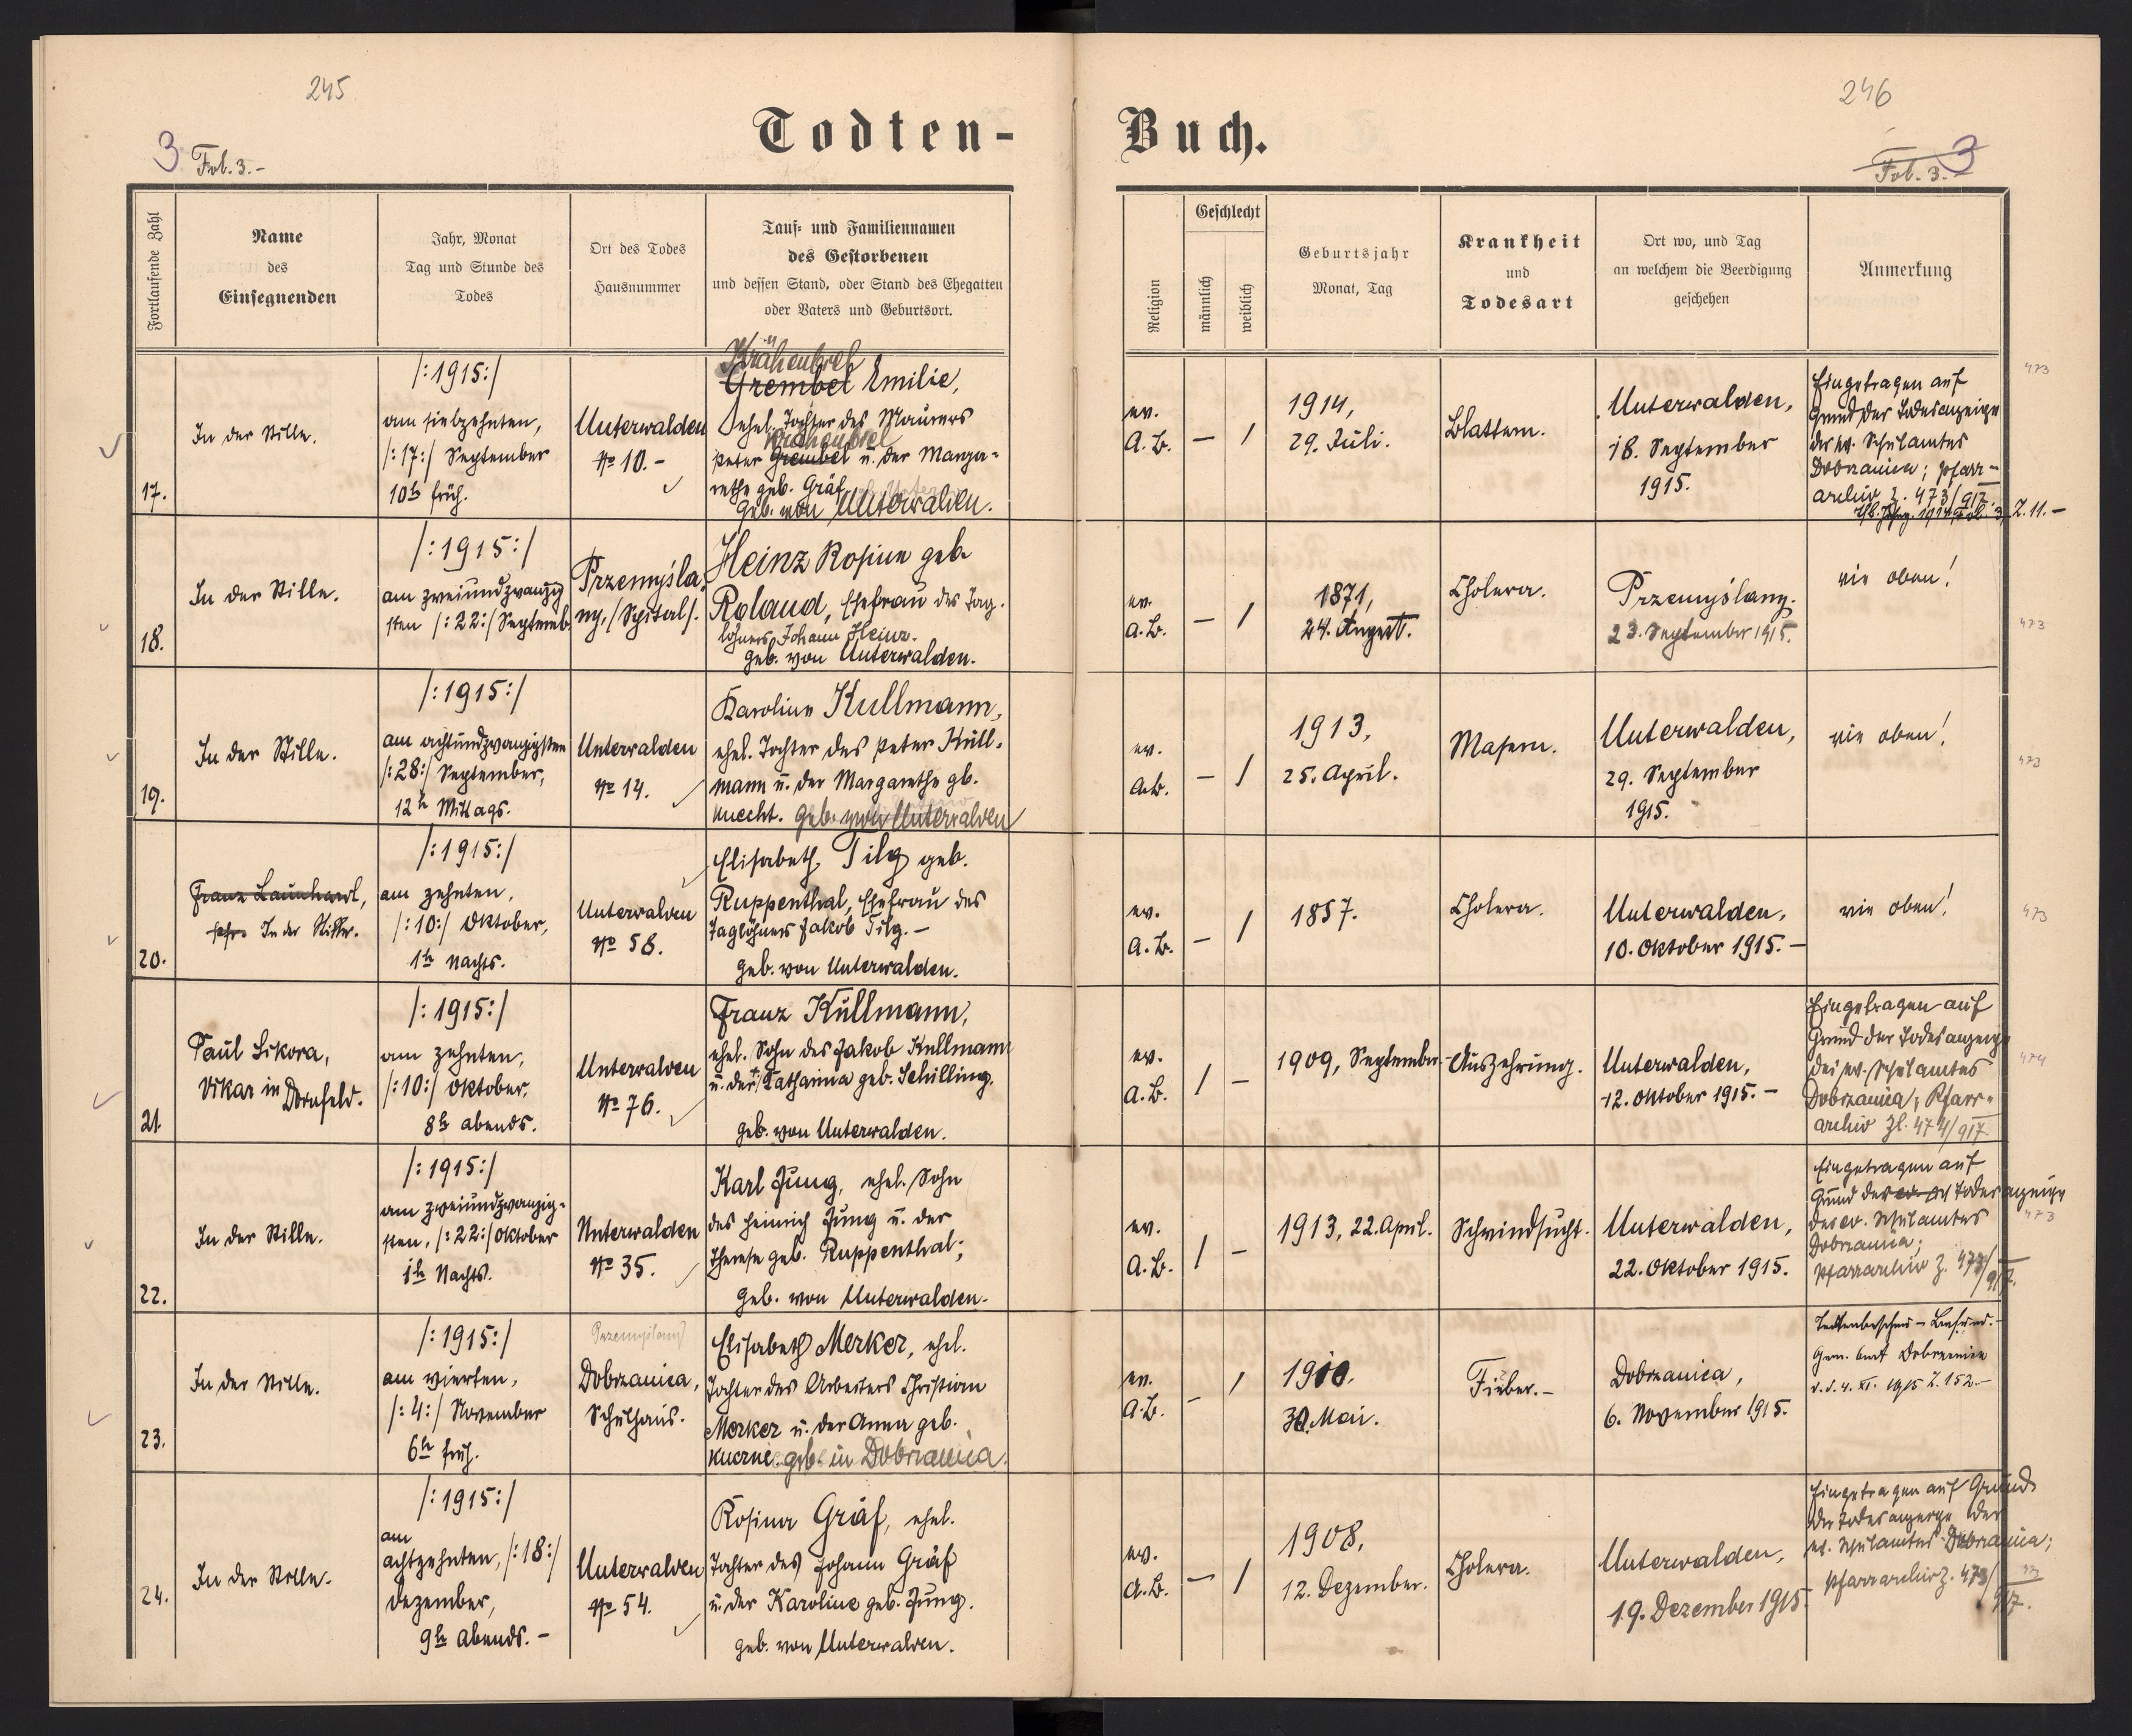 245
246
Todten-
Buch.
3 Fol. 3.-
Fol. 3. 3
Fortlaufende Zahl
Name
des
Einsegnenden
Jahr, Monat
Tag und Stunde des
Todes
Ort des Todes
Hausnummer
Tauf- und Familiennamen
des Gestorbenen
und dessen Stand, oder Stand des Ehegatten
oder Vaters und Geburtsort.
Religion
Geschlecht
männlich
weiblich
Geburtsjahr
Monat, Tag
Krankheit
und
Todesart
Ort wo, und Tag
an welchem die Beerdigung
geschehen
Anmerkung
17.
In der Stille.
/:1915:/
am siebzehnten,
/:17:/ September
10h früh.
Unterwalden
No 10.-
Krähenbiel
Grembel Emilie,
ehel. Tochter des Maurers
Krähenbiel
Peter Grembel u. der Marga-
rethe geb. Gräf
geb. von Unterwalden.
ev.
A.B.
– /
1914,
29. Juli.
Blattern.
Unterwalden,
18. September
1915.
Eingetragen auf
Grund der Todesanzeige
des ev. Schulamtes
Dobrzanica; Pfarr-
archiv Z. 473/917.
Z. 11.-
473
18.
In der Stille.
/:1915:/
am zweiundzwanzig
sten /:22:/ Septemb.
Przemyśla-
ny, /Spital/.
Heinz Rosine geb.
Roland, Ehefrau des Tag-
löhners Johann Heinz.
geb. von Unterwalden.
ev.
A.B.
– /
1871,
24. August.
Cholera.
Przemyślany.
23. September 1915.
wie oben!
473
19.
In der Stille.
/:1915:/
am achtundzwanzigsten
/:28:/ September,
12h Mittags.
Unterwalden
No 14.
Karoline Kullmann,
ehel. Tochter des Peter Kull-
mann u. der Margarethe gb.
Knecht. geb. von Unterwalden
ev.
A.B.
– /
1913,
25. April.
Masern.
Unterwalden,
29. September
1915.
wie oben!
473
20.
Franz Launhardt,
Pfr. In der Stille.
/:1915:/
am zehnten,
/:10:/ Oktober,
1h Nachts.
Unterwalden
No 58.
Elisabeth Tilg geb.
Ruppenthal, Ehefrau des
Taglöhners Jakob Tilg.-
geb. von Unterwalden.
ev.
A.B.
– /
1857.
Cholera.
Unterwalden,
10. Oktober 1915.-
wie oben!
473
21
Paul Sikora,
Vikar in Dornfeld.
/:1915:/
am zehnten,
/:10:/ Oktober,
8h abends.
Unterwalden
No 76.
Franz Kullmann,
ehel. Sohn des Jakob Kullmann
u. der Katharina geb. Schilling.
geb. von Unterwalden.
ev.
A.B.
/ –
1909, September.
Auszehrung.
Unterwalden,
12. Oktober 1915.-
Eingetragen auf
Grund der Todesanzeige
des ev. Schulamtes
Dobrzanica; Pfarr-
archiv Zl. 474/917.
474
22.
In der Stille.
/:1915:/
am zweiundzwanzig-
sten, /:22:/ Oktober
1h Nachts.
Unterwalden
No 35.
Karl Jung, ehel. Sohn
des Heinrich Jung u. der
Therese geb. Ruppenthal;
geb. von Unterwalden.
ev.
A.B.
/ –
1913, 22. April.
Schwindsucht.
Unterwalden,
22. Oktober 1915.
Eingetragen auf
Grund der Todesanzeige
des ev. Schulamtes
Dobrzanica;
Pfarrarchiv Z. 473/917.
473
23.
In der Stille.
/:1915:/
am vierten,
/:4:/ November
6h früh.
Przemyślany
Dobrzanica,
Schulhaus.
Elisabeth Merker, ehel.
Tochter des Arbeiters Christian
Merker u. der Anna geb.
geb. in Dobrzanica.
ev.
A.B.
– /
1910.
30. Mai.
Fieber.-
Dobrzanica,
6. November 1915.
Todtenbeschau-Befund.-
Gem. Amt Dobrzanica
d.d. 4. XI. 1915 Z. 152.-
24.
In der Stille.
/:1915:/
am
achtzehnten, /:18:/
Dezember,
9h Abends.-
Unterwalden
No 54.
Rosina Gräf, ehel.
Tochter des Johann Gräf
u. der Karoline geb. Jung.
geb. von Unterwalden.
ev.
A.B.
– /
1908,
12. Dezember.
Cholera.
Unterwalden,
19. Dezember 1915.
Eingetragen auf Grund
der Todesanzeige des
ev. Schulamtes Dobrzanica;
Pfarrarchiv Z. 473/917.